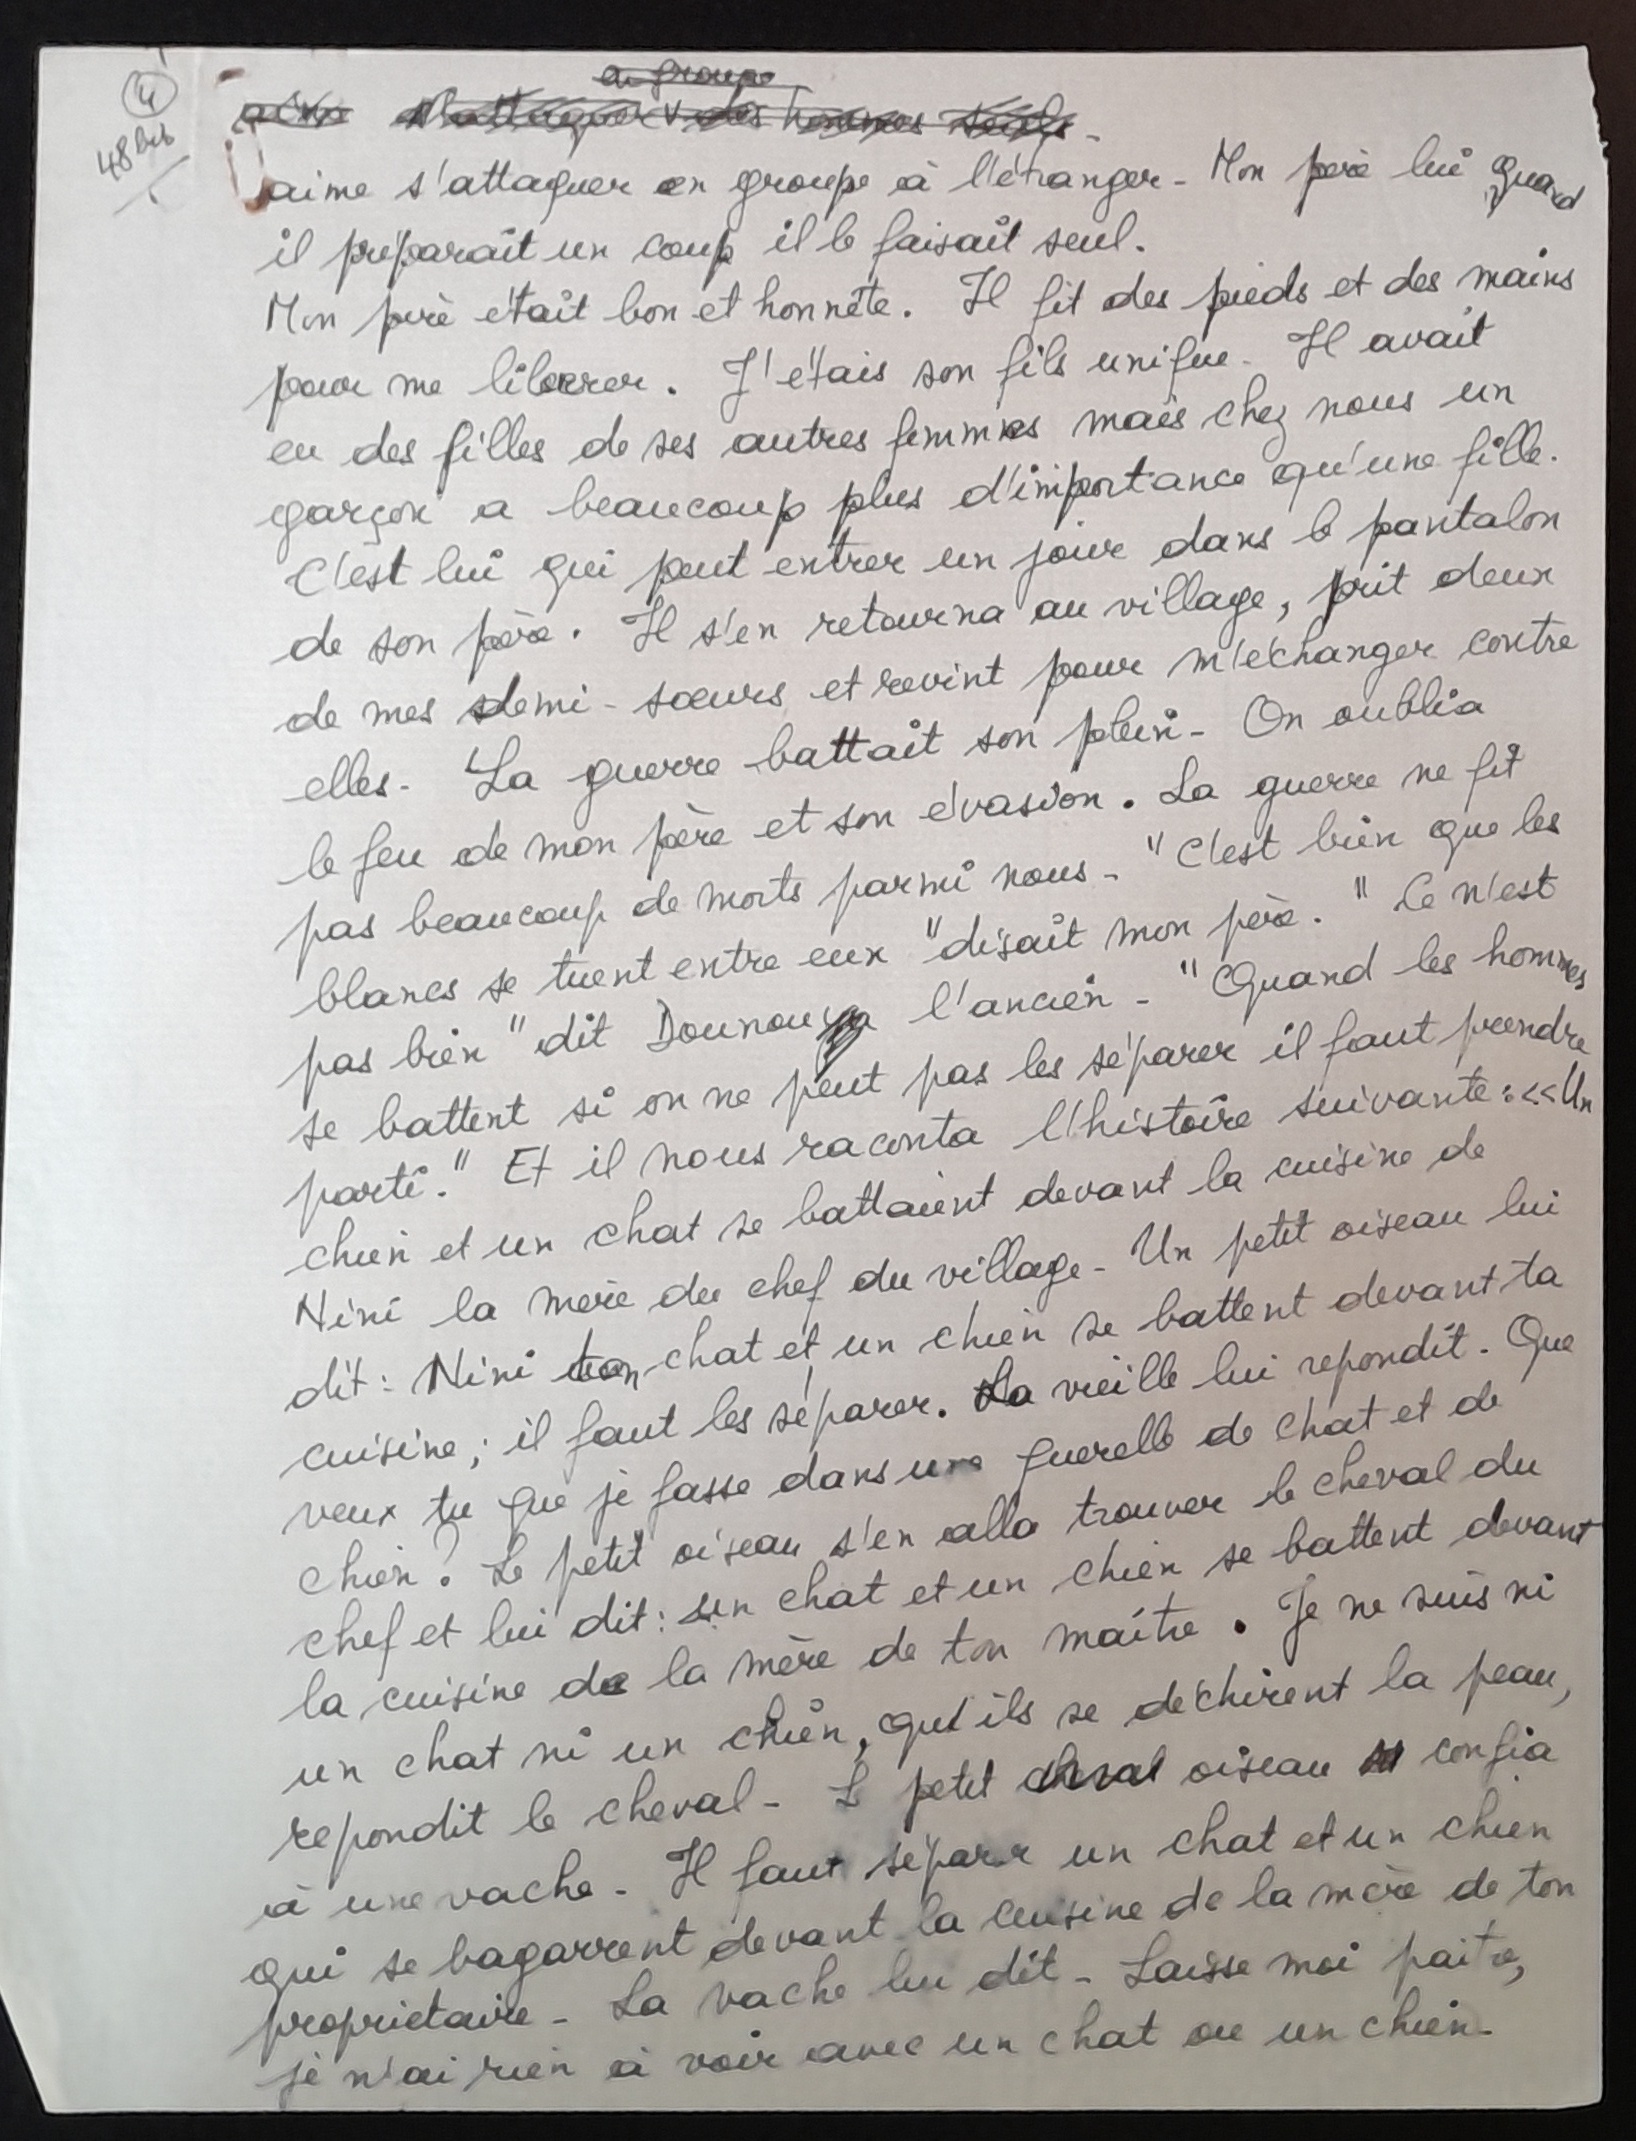 4
48 bis
en groupe
aime s'attaquer des hommes seuls -
aime s'attaquer en groupe à l'étranger - Mon père lui quand
il préparait un coup il le faisait seul.
Mon père était bon et honnête. Il fit des pieds et des mains
pour me liberer. J'étais son fils unique - Il avait
eu des filles de ses autres femmes mais chez nous un
garçon a beaucoup plus d'importance qu'une fille.
C'est lui qui peut entrer un jour dans le pantalon
de son père. Il s'en retourna au village, prit deux
de mes demi-sœurs et revint pour m'échanger contre
elles - La guerre battait son plein - On oublia
le feu de mon père et son évasion. La guerre ne fit
pas beaucoup de morts parmi nous - "C'est bien que les
blancs se tuent entre eux" disait mon père. "Ce n'est
pas bien" dit Dounouya l'ancien - "Quand les hommes
se battent si on ne peut pas les séparer il faut prendre
parti." Et il nous raconta l'histoire suivante : << Un
chien et un chat se battaient devant la cuisine de
Nini la mère du chef du village - Un petit oiseau lui
dit : Nini ton chat et un chien se battent devant ta
cuisine ; il faut les séparer. La vieille lui repondit - Que
veux tu que je fasse dans une querelle de chat et de
chien ? Le petit oiseau s'en alla trouver le cheval du
chef et lui dit : un chat et un chien se battent devant
la cuisine de la mère de ton maître. Je ne suis ni
un chat ni un chien, qu'ils se déchirent la peau,
repondit le cheval - Le petit cheval oiseau se confia
à une vache - Il faut séparer un chat et un chien
qui se bagarrent devant la cuisine de la mère de ton
proprietaire - La vache lui dit - Laisse moi paitre,
je n'ai rien à voir avec un chat ou un chien -